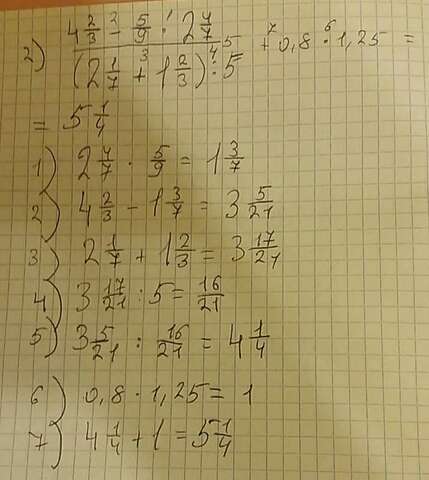 2) (4 2/3 -² 5/9 ·¹ 2 4/7) /⁵ ((2 1/7 +³ 1 2/3) :⁴ 5) +⁷ 0,8 ·⁶ 1,25 =
= 5 1/4
1) 2 4/7 · 5/9 = 1 3/7
2) 4 2/3 - 1 3/7 = 3 5/21
3) 2 1/7 + 1 2/3 = 3 17/21
4) 3 17/21 : 5 = 16/21
5) 3 5/21 : 16/21 = 4 1/4
6) 0,8 · 1,25 = 1
7) 4 1/4 + 1 = 5 1/4